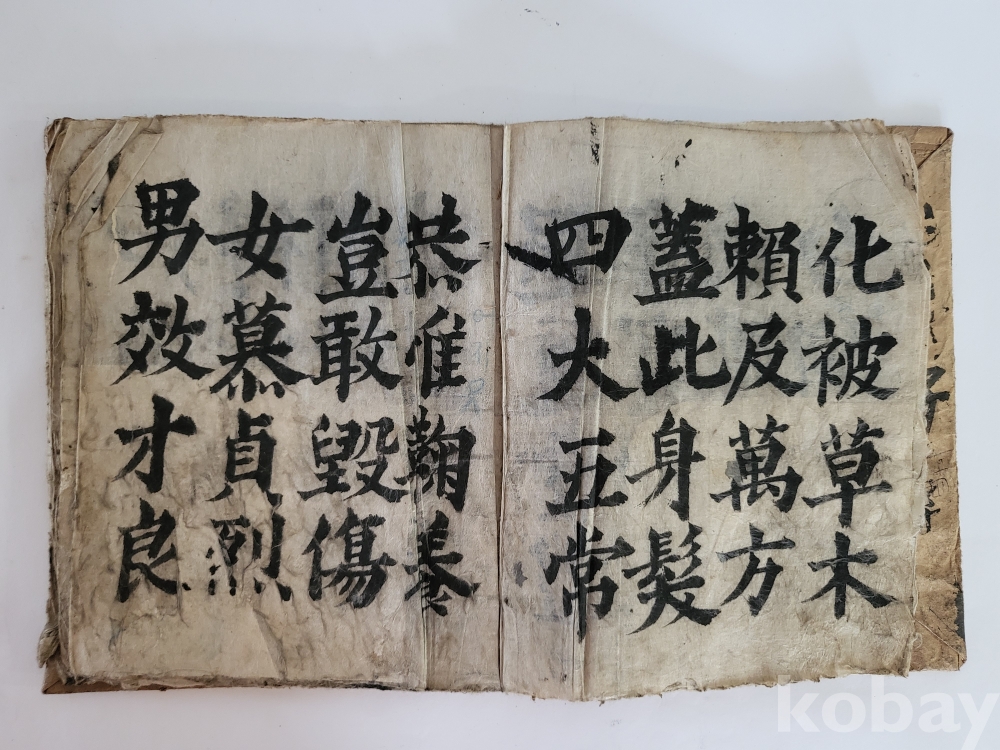 化被草木
賴及萬方
蓋此身髮
四大五常
恭惟鞠養
豈敢毀傷
女慕貞烈
男效才良
kobay